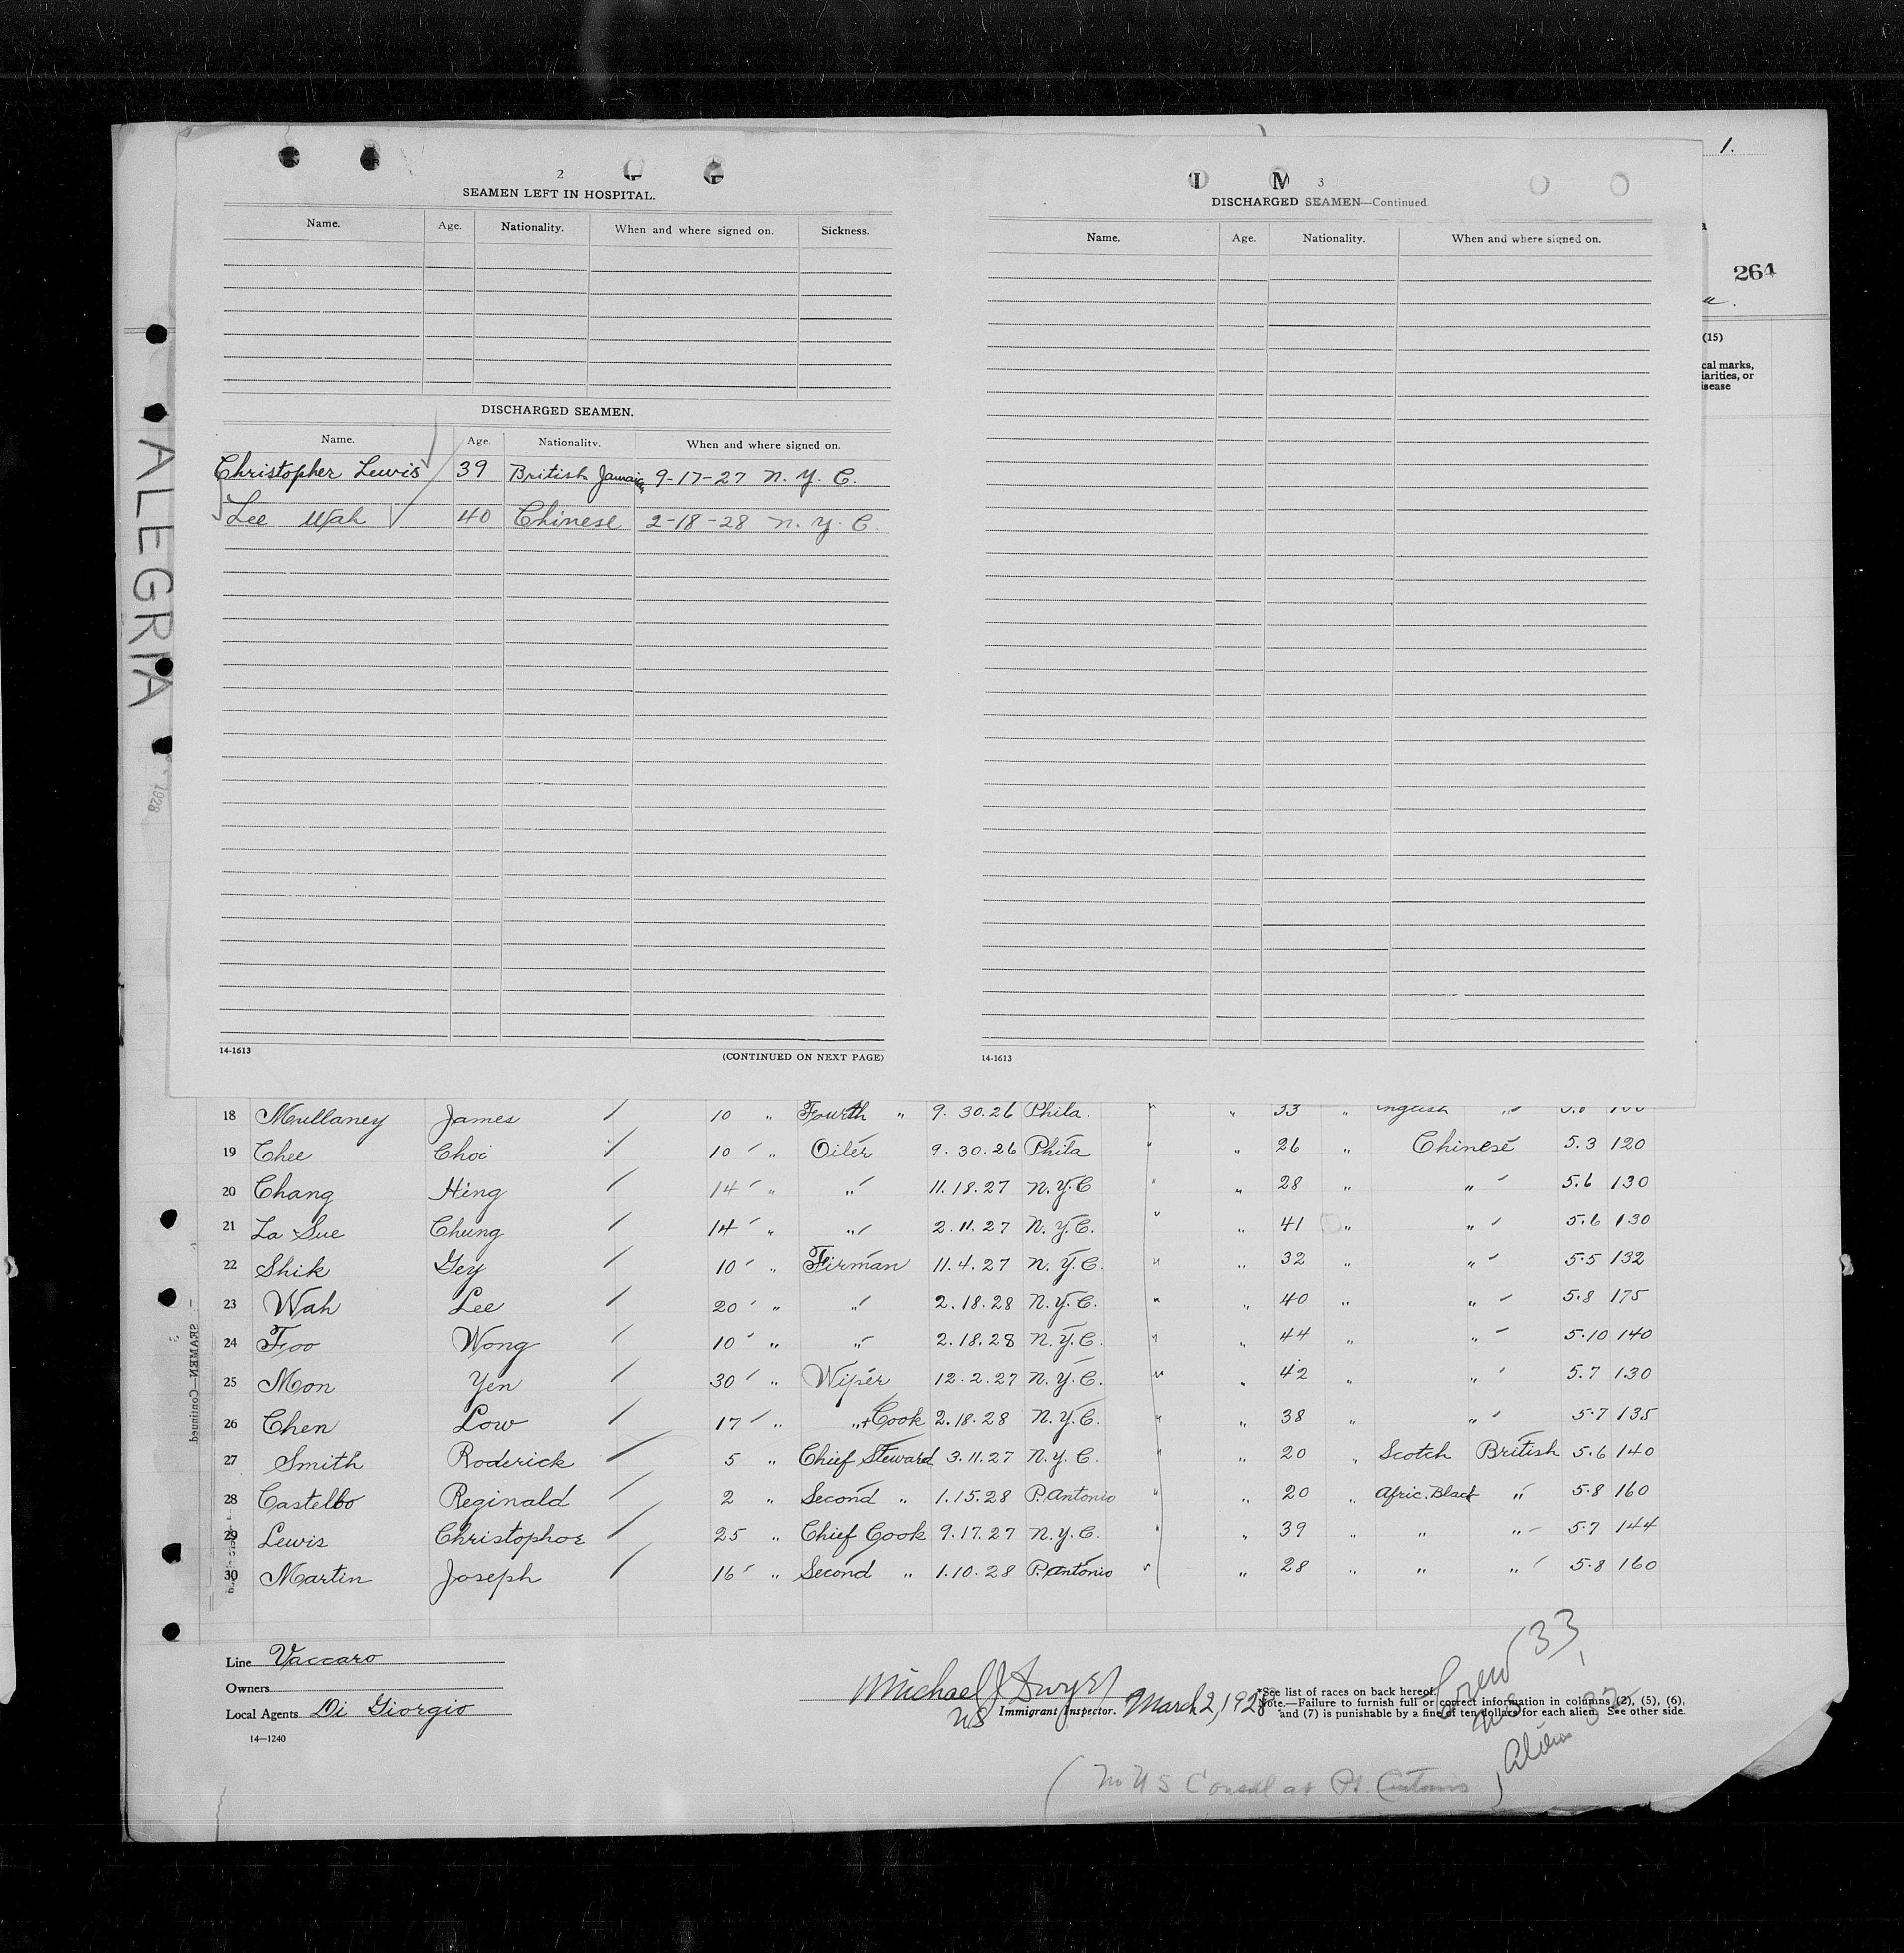 1.
2
SEAMEN LEFT IN HOSPITAL.
Name. Age. Nationality. When and where signed on. Sickness.
DISCHARGED SEAMEN.
Name. Age. Nationality. When and where signed on.
Christopher Lewis 39 British Jamaica 9-17-27 N.Y.C.
Lee Wah 40 Chinese 2-18-28 N.Y.C.
14-1613 (CONTINUED ON NEXT PAGE)
I M 3
DISCHARGED SEAMEN—Continued.
Name. Age. Nationality. When and where signed on.
14-1613
264
(15)
cal marks,
iarities, or
isease
ALEGRIA
1928
SEAMEN—Continued
18 Mullaney James 10 " Fourth " 9.30.26 Phila. " " 33 "
19 Chee Choi 10 " Oiler 9.30.26 Phila " " 26 " Chinese 5.3 120
20 Chang Hing 14 " " 11.18.27 N.Y.C " " 28 " " 5.6 130
21 La Sue Chung 14 " " 2.11.27 N.Y.C. " " 41 " " 5.6 130
22 Shik Gey 10 " Firman 11.4.27 N.Y.C. " " 32 " " 5.5 132
23 Wah Lee 20 " " 2.18.28 N.Y.C. " " 40 " " 5.8 175
24 Foo Wong 10 " " 2.18.28 N.Y.C. " " 44 " " 5.10 140
25 Mon Yen 30 " Wiper 12.2.27 N.Y.C. " " 42 " " 5.7 130
26 Chen Low 17 " "+Cook 2.18.28 N.Y.C. " " 38 " " 5.7 135
27 Smith Roderick 5 " Chief Steward 3.11.27 N.Y.C. " " 20 " Scotch British 5.6 140
28 Castello Reginald 2 " Second " 1.15.28 P.Antonio " " 20 " Afric.Black " 5.8 160
29 Lewis Christopher 25 " Chief Cook 9.17.27 N.Y.C. " " 39 " " " 5.7 144
30 Martin Joseph 16 " Second " 1.10.28 P.Antonio " " 28 " " " 5.8 160
Line Vaccaro
Owners
Local Agents Di Giorgio
14—1240
Michael J Dwyer
US Immigrant Inspector. March 2, 1928
*See list of races on back hereof.
Note.—Failure to furnish full or correct information in columns (2), (5), (6),
and (7) is punishable by a fine of ten dollars for each alien. See other side.
Crew 33
US 1
Alien 32
(No US Consul at Pt. Antonio)